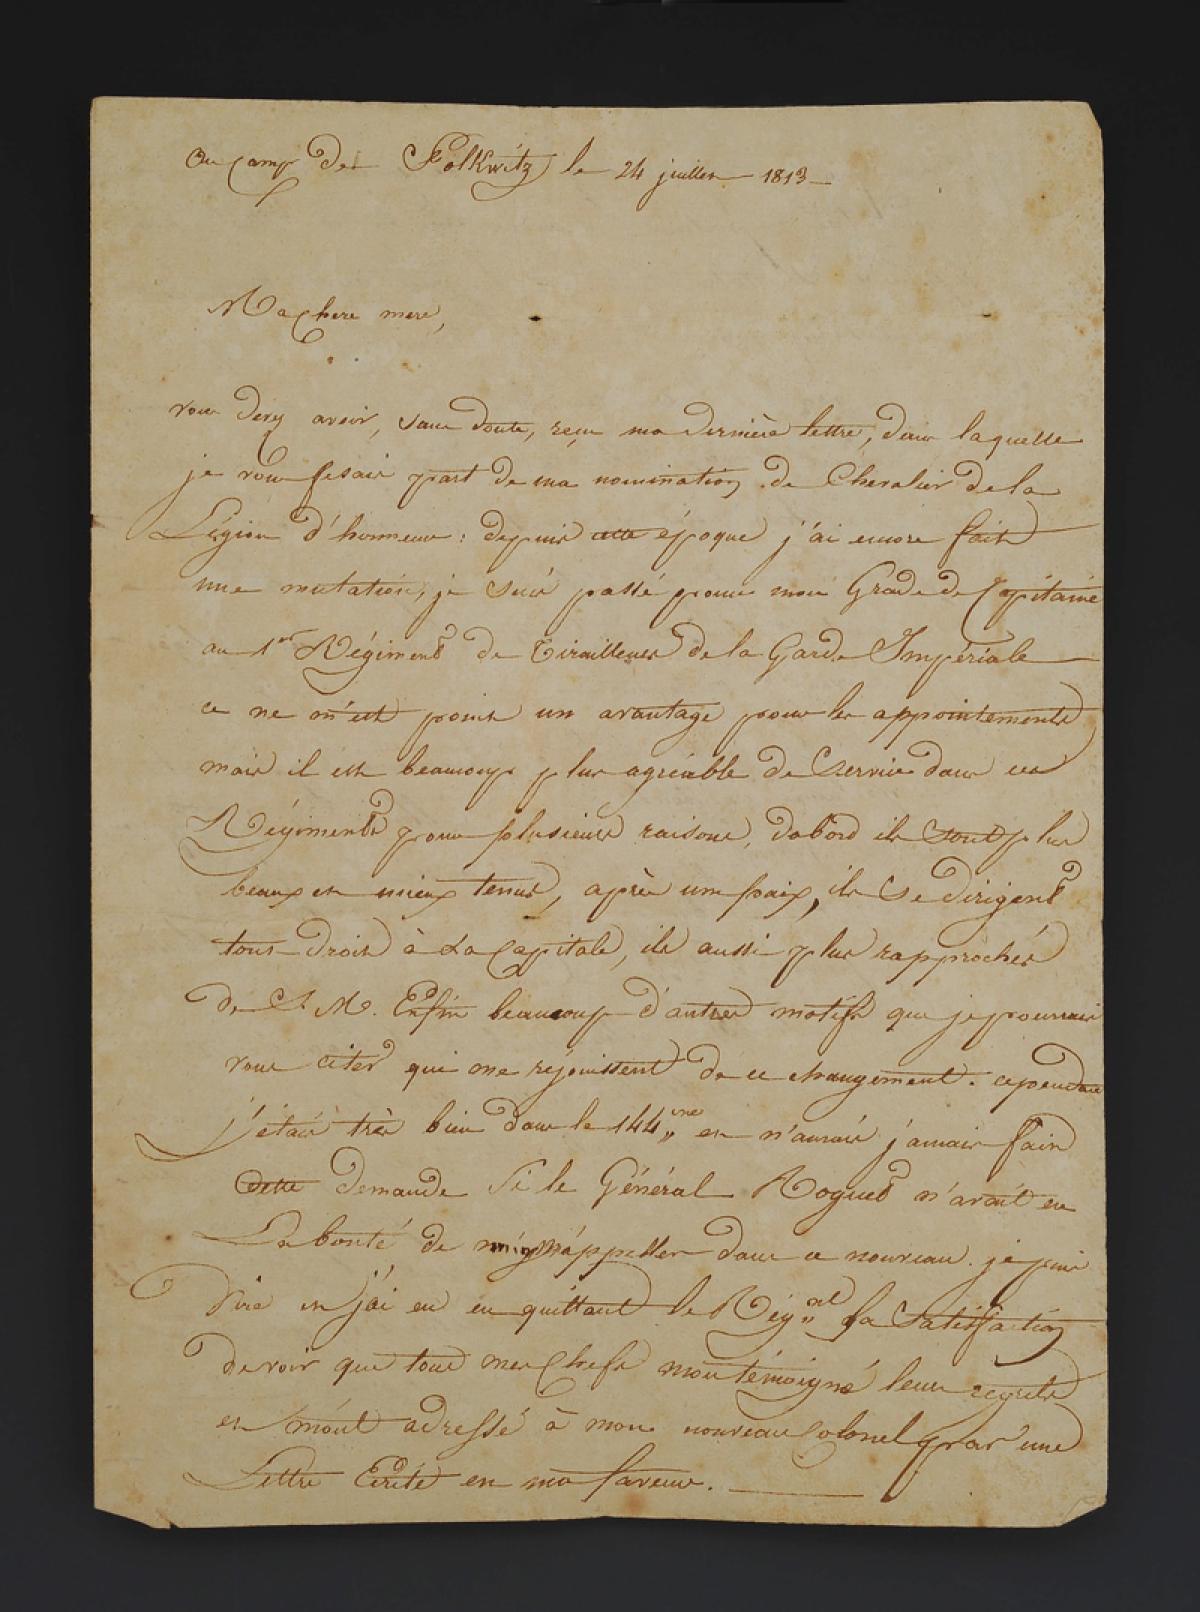 Au Camp de Polkwitz le 24 juillet 1813
Ma chere mere,
vous devez avoir, sans doute, reçu ma dernière lettre, dans laquelle
je vous fesais part de ma nomination de Chevalier de la
Légion d'honneur : depuis cette époque j'ai encore fait
une mutation, je suis passé pour mon Grade de Capitaine
au 1er Régiment de Tirailleurs de la Garde Impériale
ce ne m'est point un avantage pour les appointements
mais il est beaucoup plus agréable de Servir dans ces
Régiments pour plusieurs raisons, dabord ils sont plus
beaux et mieux tenus, après une paix, ils se dirigent
tout droit à La Capitale, ils aussi plus rapprochés
de S. M. Enfin beaucoup d'autres motifs que je pourrais
vous citer qui me réjouissent de ce changement. cependant
j'étais très bien dans le 144me et n'aurais jamais fait
cette demande si le Général Roguet n'avait eu
La bonté de m'appeller dans ce nouveau. je puis
dire et j'ai eu en quittant le Régnt la satisfaction
de voir que tous mes Chefs mont témoigné leurs regrets
et m'ont adressé à mon nouveau Colonel par une
Lettre Ecrite en ma faveur.